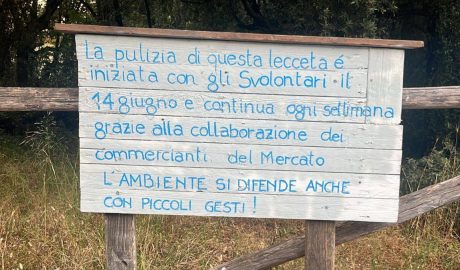 La pulizia di questa lecceta é
iniziata con gli Svolontari. Il
14 giugno e continua ogni settimana
grazie alla collaborazione dei
commercianti del Mercato
L'AMBIENTE SI DIFENDE ANCHE
CON PICCOLI GESTI!